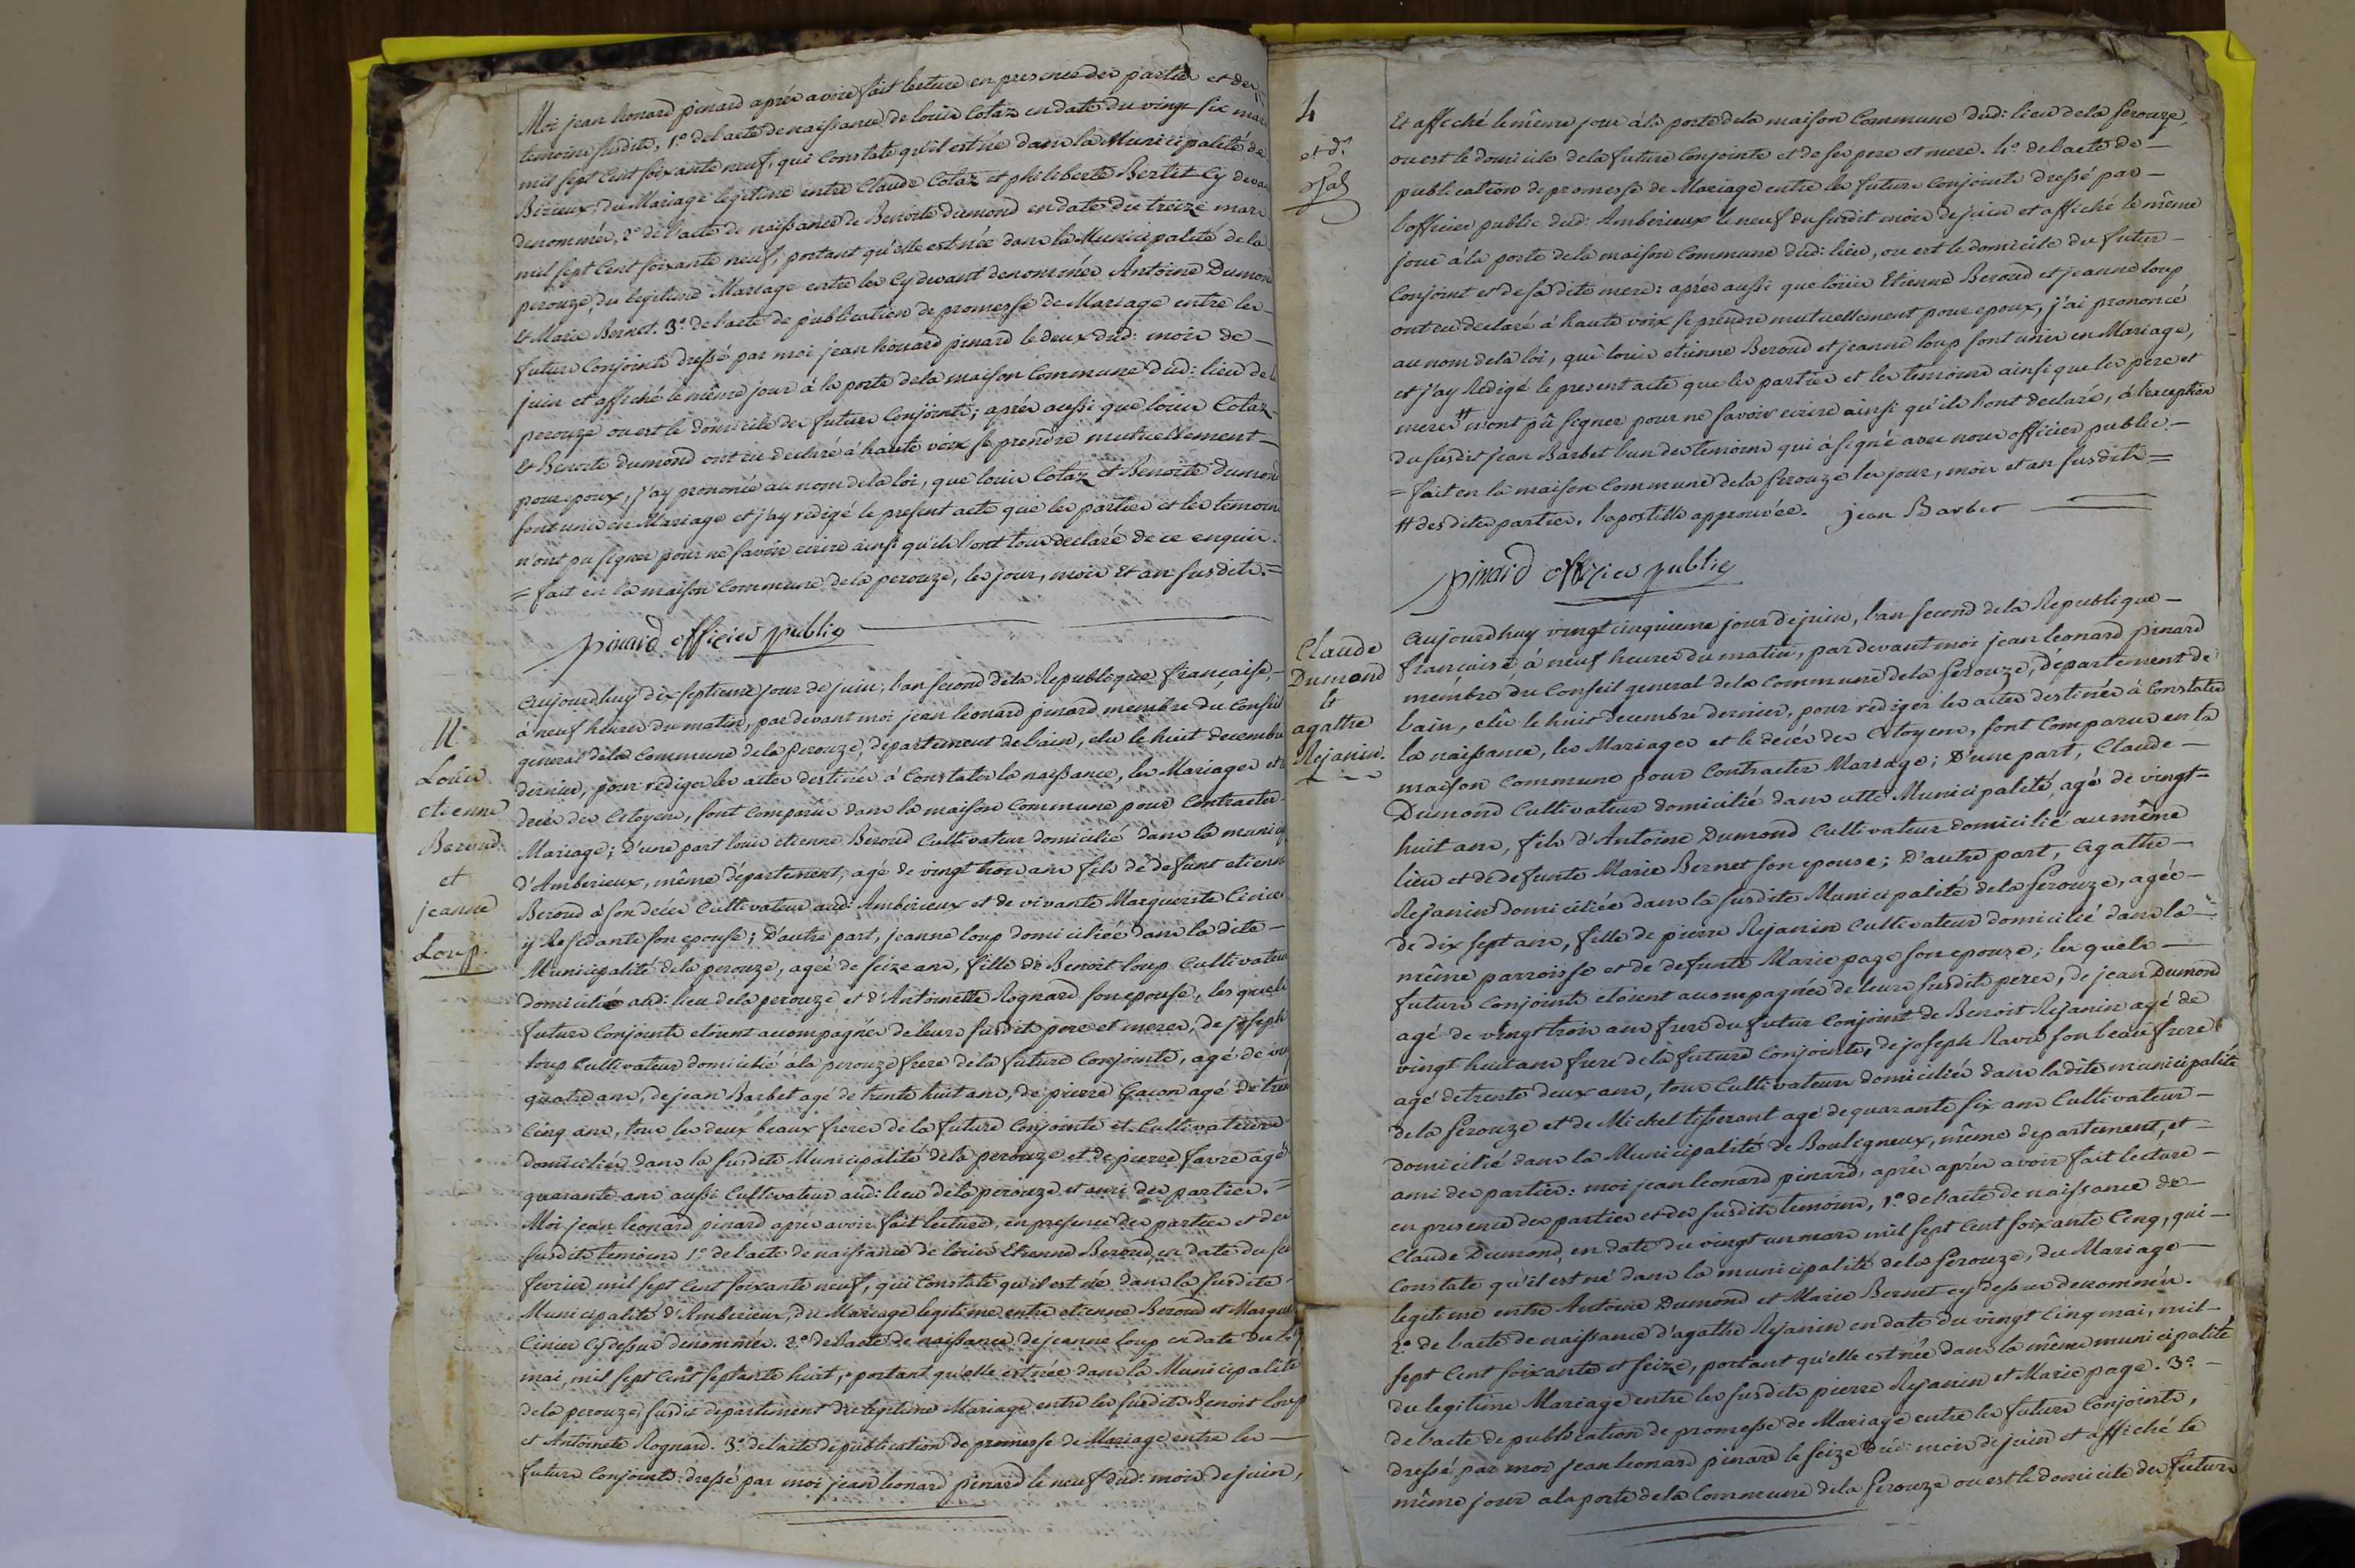 Moi jean léonard pinard aprés avoir fait lecture en presence des parties et des
temoins susdits, 1.° de l'acte de naissance de louis Cotaz en date du vingt six mars
mil sept Cent soixante neuf, qui Constate qu'il est né dans la Municipalité de
Birieux, du Mariage legitime entre Claude Cotaz et philiberte Berlet Cy devant
denommés, 2.° de l'acte de naissance de Benoite dumond en date du treize mars
mil sept Cent soixante neuf, portant qu'elle est née dans la Municipalité de la
perouze, du legitime Mariage entre les Cy devant denommés Antoine Dumond
Et Marie Bernet. 3.° de l'acte de publication de promesse de Mariage entre les
futurs Conjoints dressé par moi jean léonard pinard le deux dud: mois de
juin et affiché le même jour à la porte de la maison Commune dud: lieu de la
perouze ou est le domicile des futurs Conjoints; aprés aussi que louis Cotaz
Et Benoite dumond ont eu declaré à haute voix se prendre mutuellement
pour epoux, j'ay prononcé au nom de la loi, que louis Cotaz et Benoite dumond
sont unis en Mariage et j'ay redigé le present acte que les parties et les temoins
n'ont pu signer pour ne savoir ecrire ainsi qu'ils l'ont tous declaré de ce enquis.
= fait en la maison Commune de la perouze, les jour, mois Et an susdits. =
pinard officier public
Louis
etienne
Beroud
et
jeanne
Loup.
Aujourdhuy dix septieme jour de juin, l'an second de la Republique française,
à neuf heures du matin, par devant moi jean léonard pinard membre du Conseil
general de la Commune de la perouze, département de l'ain, elu le huit decembre
dernier, pour rediger les actes destinés à Constater la naissance, les Mariages et le
decés des Citoyens, sont Comparus dans la maison Commune pour Contracter
Mariage; D'une part louis etienne Beroud Cultivateur domicilié dans la municip
d'Amberieux, même département, agé de vingt trois ans fils de defunt etienne
Beroud à son decés Cultivateur aud: Amberieux et de vivante Marguerite Cinier
y Residante son epouse; D'autre part, jeanne loup domiciliée dans la dite
Municipalité de la perouze, ageé de seize ans, fille de Benoit loup Cultivateur
domicilié aud: lieu de la perouze et d'Antoinette Rognard son epouse, les quels
futurs Conjoints etoient accompagnés de leurs susdits pere et meres, de joseph
loup Cultivateur domicilié à la perouze frere de la future Conjointe, agé de
quatre ans, de jean Barbet agé de trente huit ans, de pierre Gacon agé de
Cinq ans, tous les deux beaux freres de la future Conjointe et Cultivateurs
domiciliés dans la susdite Municipalité de la perouze et de pierre favre agé
quarante ans aussi Cultivateur aud: lieu de la perouze et ami des parties. =
Moi jean léonard pinard aprés avoir fait lecture, en presence des parties et des
susdits temoins 1.° de l'acte de naissance de louis Etienne Beroud, en date du
fevrier mil sept Cent soixante neuf, qui Constate qu'il est né dans la susdite
Municipalité d'Amberieux, du Mariage legitime entre etienne Beroud et Margue
Cinier Cy dessus denommés. 2.° de l'acte de naissance de jeanne loup en date du
mai, mil sept Cent septante huit, portant qu'elle est née dans la Municipalité
de la perouze, susdit departement du legitime Mariage entre les susdits Benoit loup
et Antoinete Rognard. 3.° de l'acte de publication de promesse de Mariage entre les
futurs Conjoints: dressé par moi jean léonard pinard le neuf dud: mois de juin,
4
Et affiché le même jour à la porte de la maison Commune dud: lieu de la Perouze,
ou est le domicile de la future Conjointe et de ses pere et mere. 4.° de l'acte de
publication de promesse de Mariage entre les futurs Conjoints dressé par
l'officier public dud: Amberieux le neuf du susdit mois de juin et affiché le même
jour à la porte de la maison Commune dud: lieu, ou est le domicile du futur
Conjoint et de sa dite mere: aprés aussi que louis Etienne Beroud et jeanne loup
ont eu declaré à haute voix se prendre mutuellement pour epoux, j'ai prononcé
au nom de la loi, que louis etienne Beroud et jeanne loup sont unis en Mariage,
et j'ay Redigé le present acte que les parties et les temoins ainsi que les pere et
meres # n'ont pû signer pour ne savoir ecrire ainsi qu'ils l'ont declaré, à l'exception
du susdit jean Barbet l'un des temoins qui à signé avec nous officier public.
= fait en la maison Commune de la Perouze les jour, mois et an susdits =
# desdites parties, l'apostille approuvée. jean Barbet
pinard officier public
Claude
Dumond
&
agathe
Rejanin.
Aujourdhuy vingt cinquieme jour de juin, l'an second de la Republique
française, à neuf heures du matin, par devant moi jean leonard pinard
membre du Conseil general de la Commune de la Perouze, département de
l'ain, elû le huit decembre dernier, pour rediger les actes destinés à Constater
la naissance, les Mariages et le decés des Citoyens, sont Comparus en la
maison Commune pour Contracter Mariage; D'une part, Claude
Dumond Cultivateur domicilié dans cette Municipalité, agé de vingt=
huit ans, fils d'Antoine Dumond Cultivateur domicilié au même
lieu et de defunte Marie Bernet son epouse; D'autre part, Agathe
Rejanin domiciliée dans la susdite Municipalité de la Perouze, agée
de dix sept ans, fille de pierre Rejanin Cultivateur domicilié dans la
même parroisse et de defunte Marie page son epouze; les quels
futurs Conjoints etoient accompagnés de leurs susdits peres, de jean Dumond
agé de vingt trois ans frere du futur Conjoint de Benoit Rejanin agé de
vingt huit ans frere de la future Conjointe, de joseph Ravet son beau frere
agé de trente deux ans, tous Cultivateurs domiciliés dans ladite municipalité
de la Perouze et de Michel tisserant agé de quarante six ans Cultivateur
domicilié dans la Municipalité de Bouligneux, même departement, et
ami des parties: moi jean leonard pinard, aprés aprés avoir fait lecture
en presence des parties et des susdits temoins, 1.° de l'acte de naissance de
Claude Dumond, en date du vingt un mars mil sept Cent soixante Cinq, qui
Constate qu'il est né dans la municipalité de la Perouze, du Mariage
legitime entre Antoine Dumond et Marie Bernet cy dessus denommés.
2.° de l'acte de naissance d'agathe Rejanin en date du vingt Cinq mai, mil
sept Cent soixante et seize, portant qu'elle est née dans la même municipalité
du legitime Mariage entre les susdits pierre Rejanin et Marie page. 3.°
de l'acte de publication de promesse de Mariage entre les futurs Conjoints,
dressé par moi jean leonard pinard le seize dud: mois de juin et affiché le
même jour a la porte de la Commune de la Perouze ou est le domicile des futurs